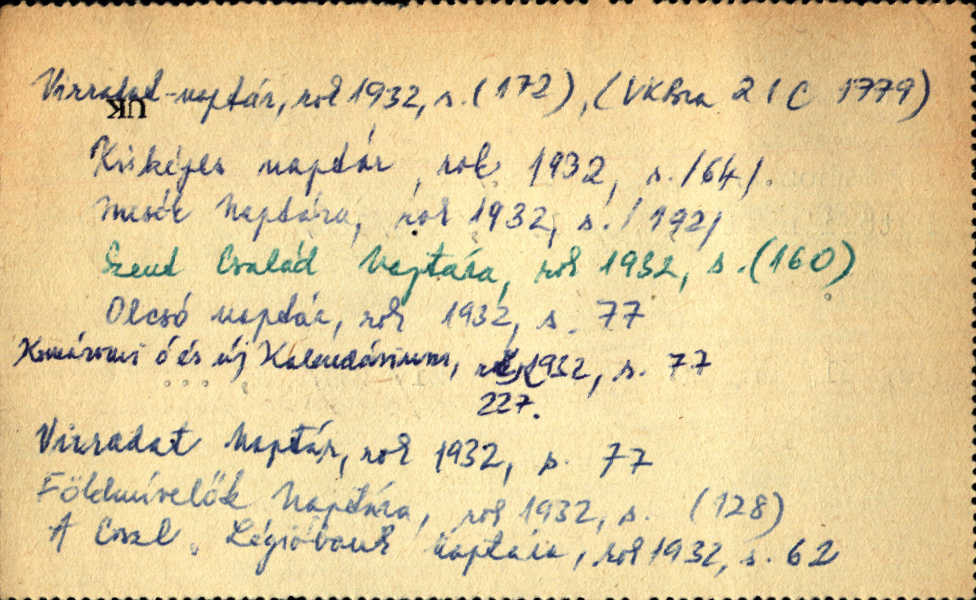 Virradat-naptár, rok 1932, s. (172), (VKBra 21 C 1779)
UK
Kisképes naptár, rok 1932, s. /64/.
Mesék Naptára, rok 1932, s. /192/
Szent Család Naptára, rok 1932, s. (160)
Olcsó naptár, rok 1932, s. 77
Komáromi ó és új Kalendárium, rok 1932, s. 77
227.
Virradat Naptár, rok 1932, s. 77
Földmívelők Naptára, rok 1932, s. (128)
A Csl. Légióbank Naptára, rok 1932, s. 62